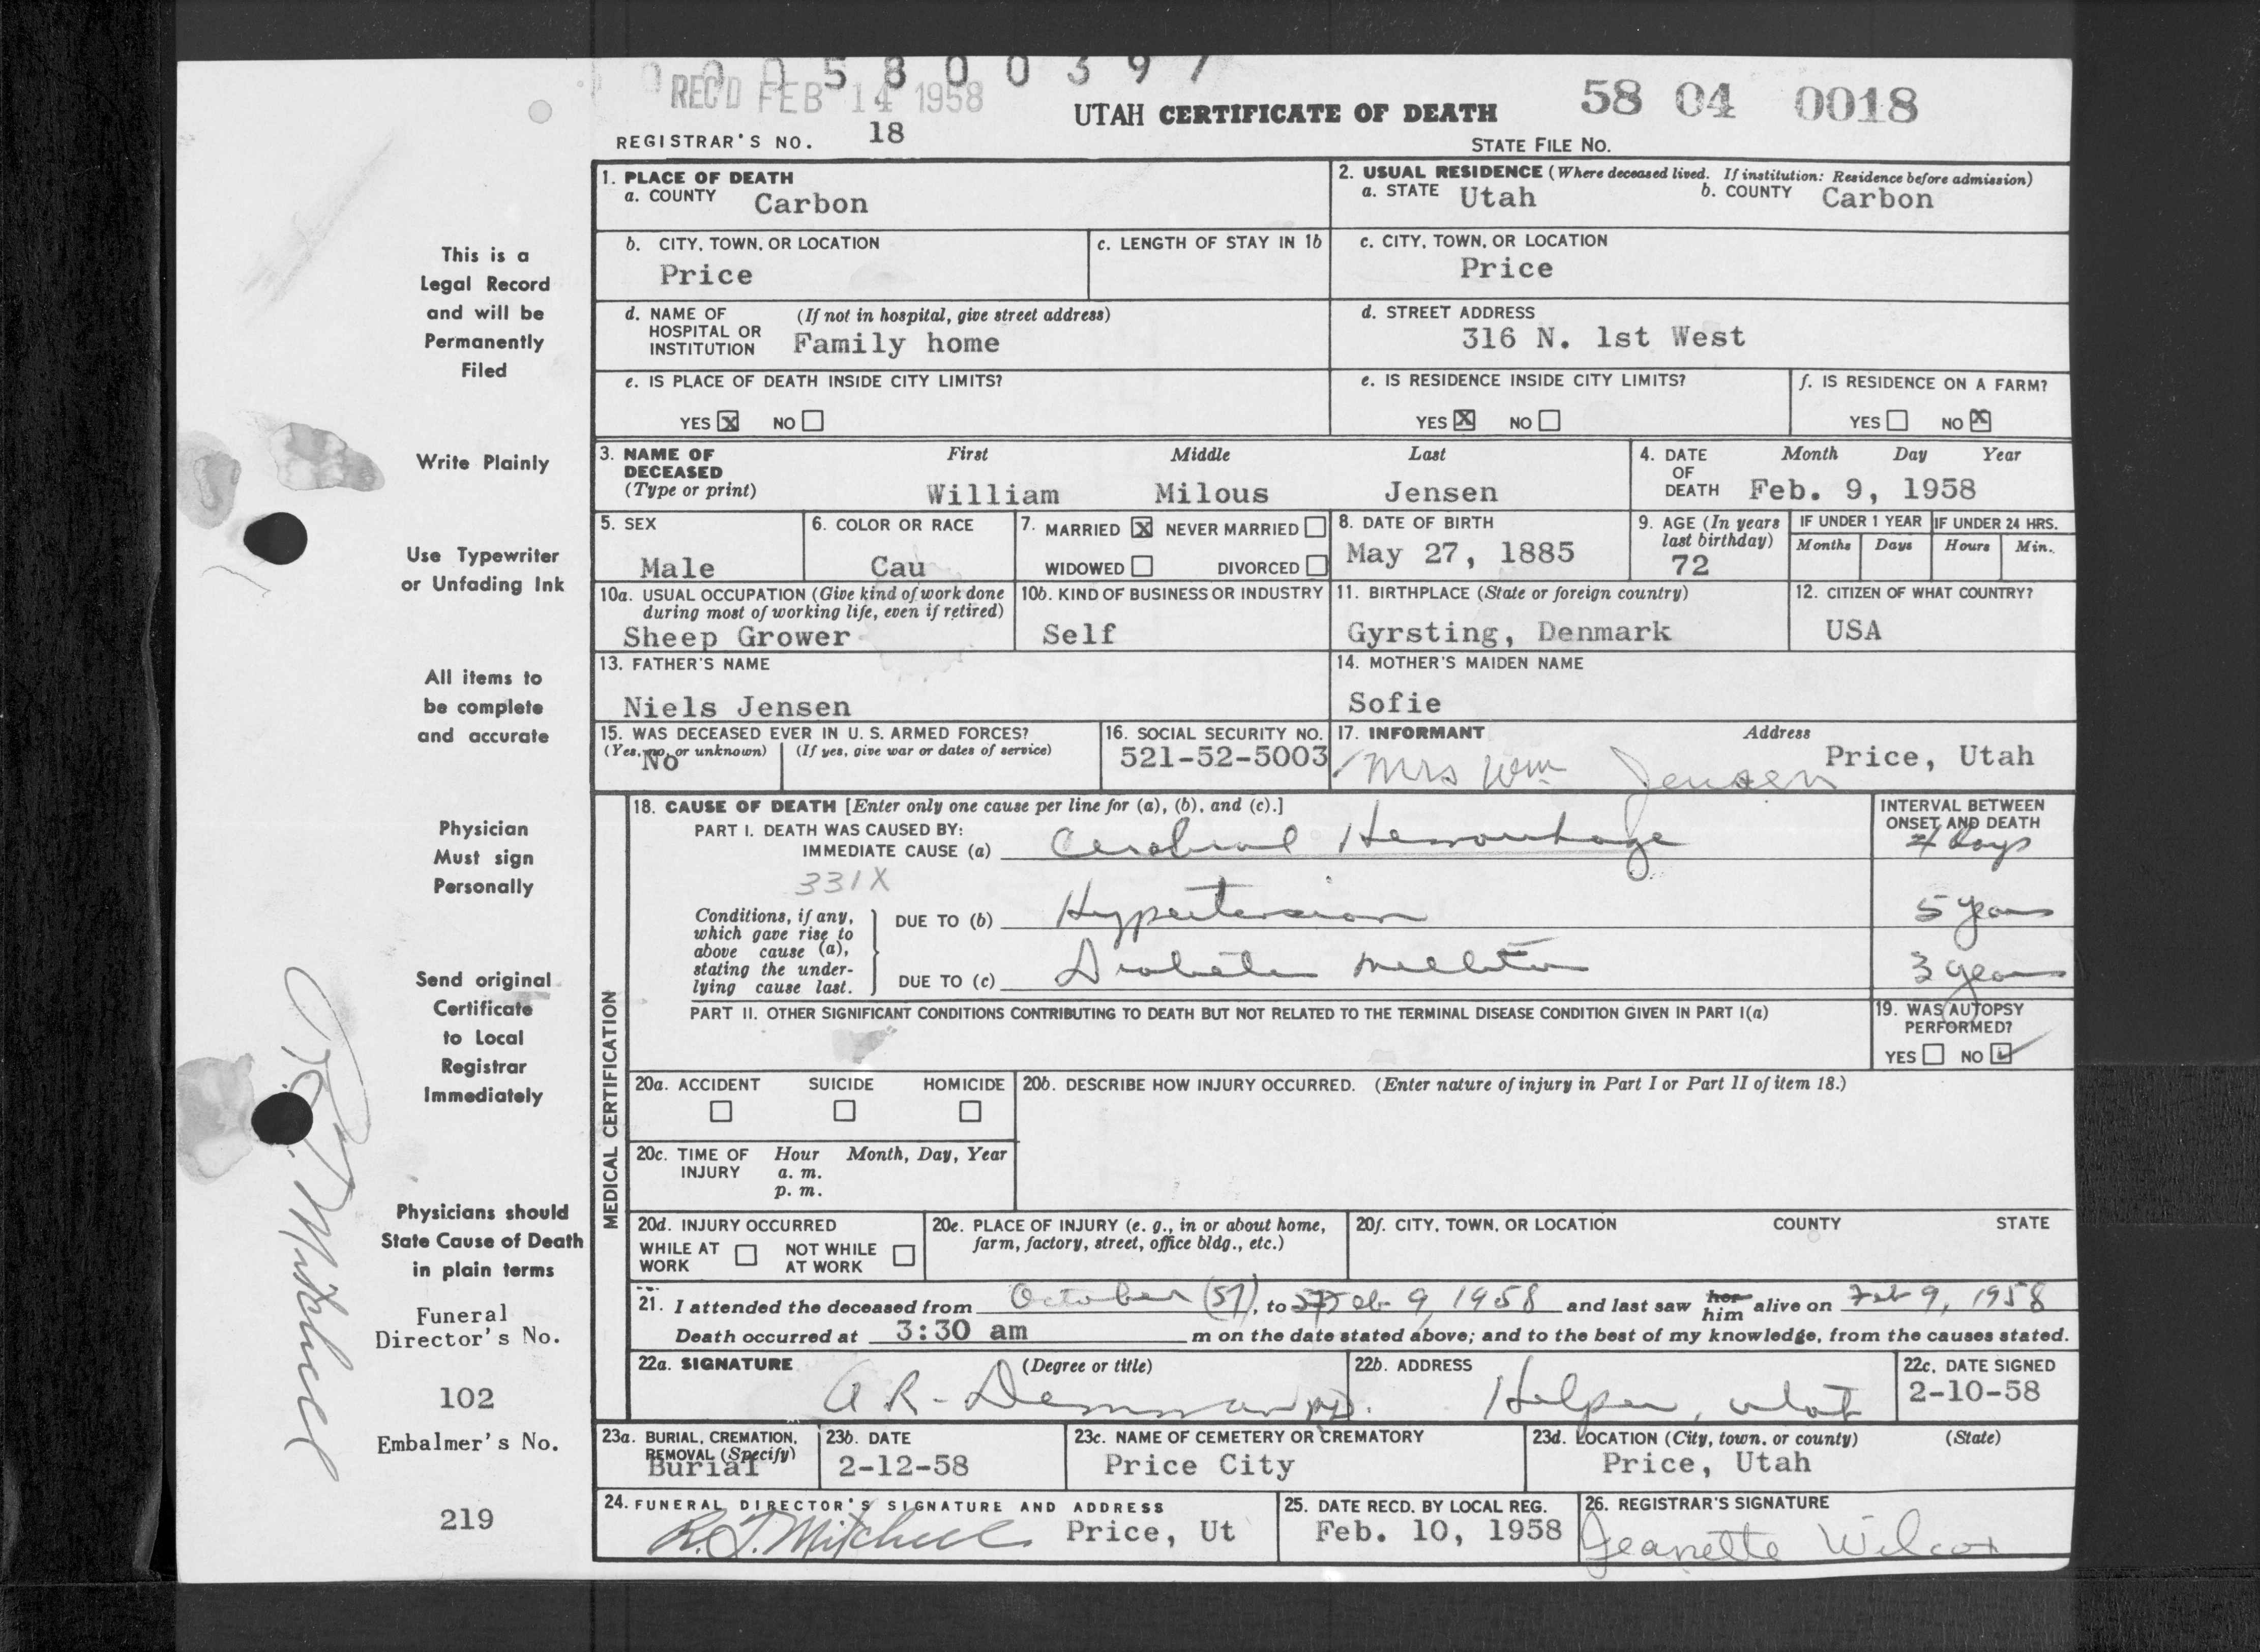 0 0 0 5 8 0 0 3 9 7
REC'D FEB 14 1958
UTAH CERTIFICATE OF DEATH
58 04 0018
REGISTRAR'S NO. 18
STATE FILE No.
1. PLACE OF DEATH
a. COUNTY Carbon
2. USUAL RESIDENCE (Where deceased lived. If institution: Residence before admission)
a. STATE Utah b. COUNTY Carbon
b. CITY, TOWN, OR LOCATION
Price
c. LENGTH OF STAY IN 1b
c. CITY, TOWN, OR LOCATION
Price
d. NAME OF HOSPITAL OR INSTITUTION (If not in hospital, give street address)
Family home
d. STREET ADDRESS
316 N. 1st West
e. IS PLACE OF DEATH INSIDE CITY LIMITS?
YES X NO
e. IS RESIDENCE INSIDE CITY LIMITS?
YES X NO
f. IS RESIDENCE ON A FARM?
YES NO X
3. NAME OF DECEASED (Type or print)
First Middle Last
William Milous Jensen
4. DATE OF DEATH Month Day Year
Feb. 9, 1958
5. SEX
Male
6. COLOR OR RACE
Cau
7. MARRIED X NEVER MARRIED
WIDOWED DIVORCED
8. DATE OF BIRTH
May 27, 1885
9. AGE (In years last birthday)
72
IF UNDER 1 YEAR IF UNDER 24 HRS.
Months Days Hours Min.
10a. USUAL OCCUPATION (Give kind of work done during most of working life, even if retired)
Sheep Grower
10b. KIND OF BUSINESS OR INDUSTRY
Self
11. BIRTHPLACE (State or foreign country)
Gyrsting, Denmark
12. CITIZEN OF WHAT COUNTRY?
USA
13. FATHER'S NAME
Niels Jensen
14. MOTHER'S MAIDEN NAME
Sofie
15. WAS DECEASED EVER IN U. S. ARMED FORCES?
(Yes, no, or unknown) (If yes, give war or dates of service)
No
16. SOCIAL SECURITY NO.
521-52-5003
17. INFORMANT Address
Mrs Wm Jensen Price, Utah
MEDICAL CERTIFICATION
18. CAUSE OF DEATH [Enter only one cause per line for (a), (b), and (c).]
INTERVAL BETWEEN ONSET AND DEATH
PART I. DEATH WAS CAUSED BY:
IMMEDIATE CAUSE (a) Cerebral Hemorrhage 4 days
331X
Conditions, if any, which gave rise to above cause (a), stating the underlying cause last.
DUE TO (b) Hypertension 5 years
DUE TO (c) Diabetes mellitus 3 years
PART II. OTHER SIGNIFICANT CONDITIONS CONTRIBUTING TO DEATH BUT NOT RELATED TO THE TERMINAL DISEASE CONDITION GIVEN IN PART I(a)
19. WAS AUTOPSY PERFORMED?
YES NO ✓
20a. ACCIDENT SUICIDE HOMICIDE
20b. DESCRIBE HOW INJURY OCCURRED. (Enter nature of injury in Part I or Part II of item 18.)
20c. TIME OF INJURY Hour Month, Day, Year
a. m.
p. m.
20d. INJURY OCCURRED
WHILE AT WORK NOT WHILE AT WORK
20e. PLACE OF INJURY (e. g., in or about home, farm, factory, street, office bldg., etc.)
20f. CITY, TOWN, OR LOCATION COUNTY STATE
21. I attended the deceased from October (57), to Feb 9, 1958 and last saw her him alive on Feb 9, 1958
Death occurred at 3:30 am m on the date stated above; and to the best of my knowledge, from the causes stated.
22a. SIGNATURE (Degree or title)
A R. Demman MD.
22b. ADDRESS
Helper, Utah
22c. DATE SIGNED
2-10-58
23a. BURIAL, CREMATION, REMOVAL (Specify)
Burial
23b. DATE
2-12-58
23c. NAME OF CEMETERY OR CREMATORY
Price City
23d. LOCATION (City, town, or county) (State)
Price, Utah
24. FUNERAL DIRECTOR'S SIGNATURE AND ADDRESS
R.J. Mitchell Price, Ut
25. DATE RECD. BY LOCAL REG.
Feb. 10, 1958
26. REGISTRAR'S SIGNATURE
Jeanette Wilcox
This is a
Legal Record
and will be
Permanently
Filed
Write Plainly
Use Typewriter
or Unfading Ink
All items to
be complete
and accurate
Physician
Must sign
Personally
Send original
Certificate
to Local
Registrar
Immediately
Physicians should
State Cause of Death
in plain terms
Funeral
Director's No.
102
Embalmer's No.
219
Mitchell